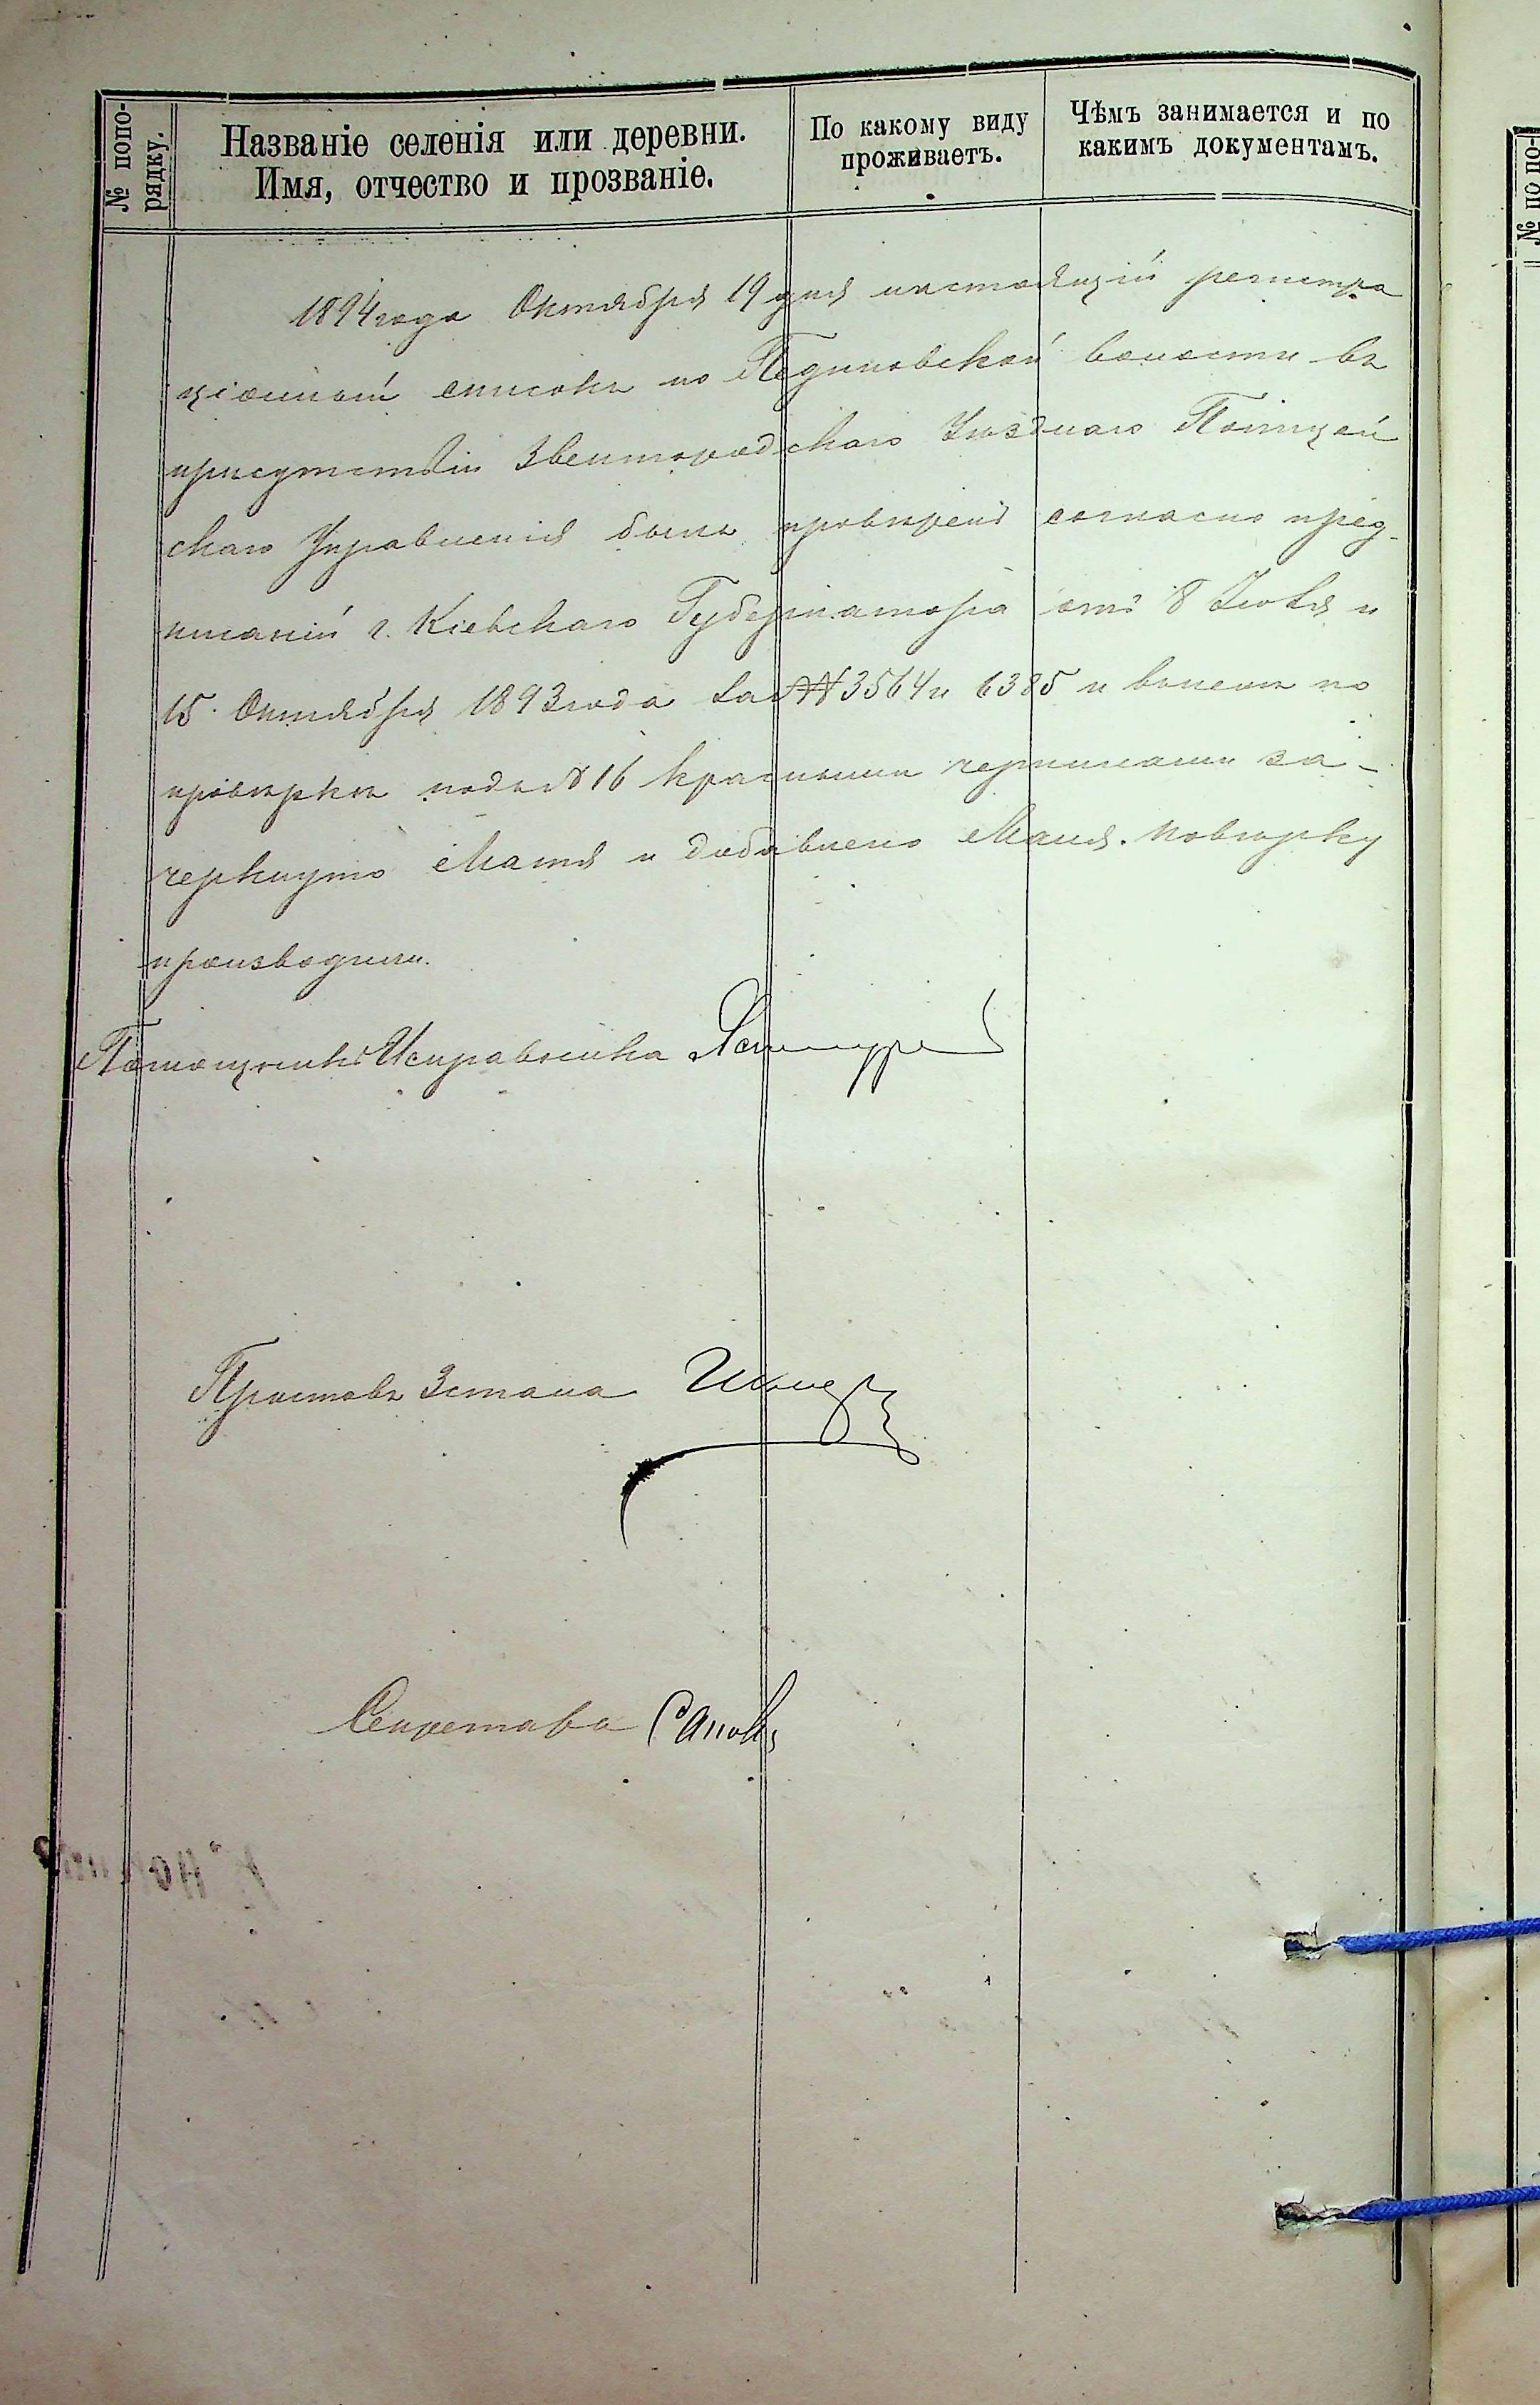 № попо-
рядку.
Названіе селенія или деревни.
Имя, отчество и прозваніе.
По какому виду
проживаетъ.
Чѣмъ занимается и по
какимъ документамъ.
1894 года Октября 19 дня настоящій регистра
ціонный списокъ по волости въ
присутствіи Звенигородскаго Уѣзднаго Полицей
скаго Управленія былъ провѣренъ согласно пред-
писаній г. Кіевскаго Губернатора отъ 8 и
15 Октября 1893 года за №№ 3564 и 6385 и по
провѣркѣ подъ № 16 красными чернилами за-
черкнуто и добавлено Маня. повѣрку
производили.
Помощникъ Исправника
Приставъ 3 стана
Секретарь
№ по по-